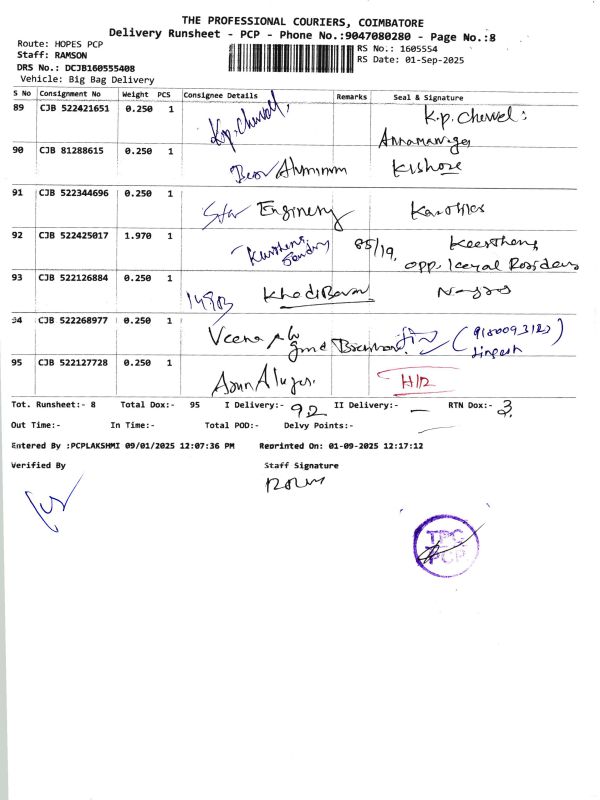 THE PROFESSIONAL COURIERS, COIMBATORE
Delivery Runsheet - PCP - Phone No.:9047080280 - Page No.:8
Route: HOPES PCP
Staff: RAMSON
DRS No.: DCJB160555408
Vehicle: Big Bag Delivery
RS No.: 1605554
RS Date: 01-Sep-2025
S No Consignment No Weight PCS Consignee Details Remarks Seal & Signature
89 CJB 522421651 0.250 1 K.p. Chervel: K.p. Chervel:
90 CJB 81288615 0.250 1 Aluminum Kishore
91 CJB 522344696 0.250 1 Star Karthika
92 CJB 522425017 1.970 1 85/19,
opp.
93 CJB 522126884 0.250 1 14903 Khodi
94 CJB 522268977 0.250 1 Veena
95 CJB 522127728 0.250 1 Arun H/R
Tot. Runsheet:- 8 Total Dox:- 95 I Delivery:- 92 II Delivery:- — RTN Dox:- 3
Out Time:- In Time:- Total POD:- Delvy Points:-
Entered By :PCPLAKSHMI 09/01/2025 12:07:36 PM Reprinted On: 01-09-2025 12:17:12
Verified By Staff Signature
TPC
PCP